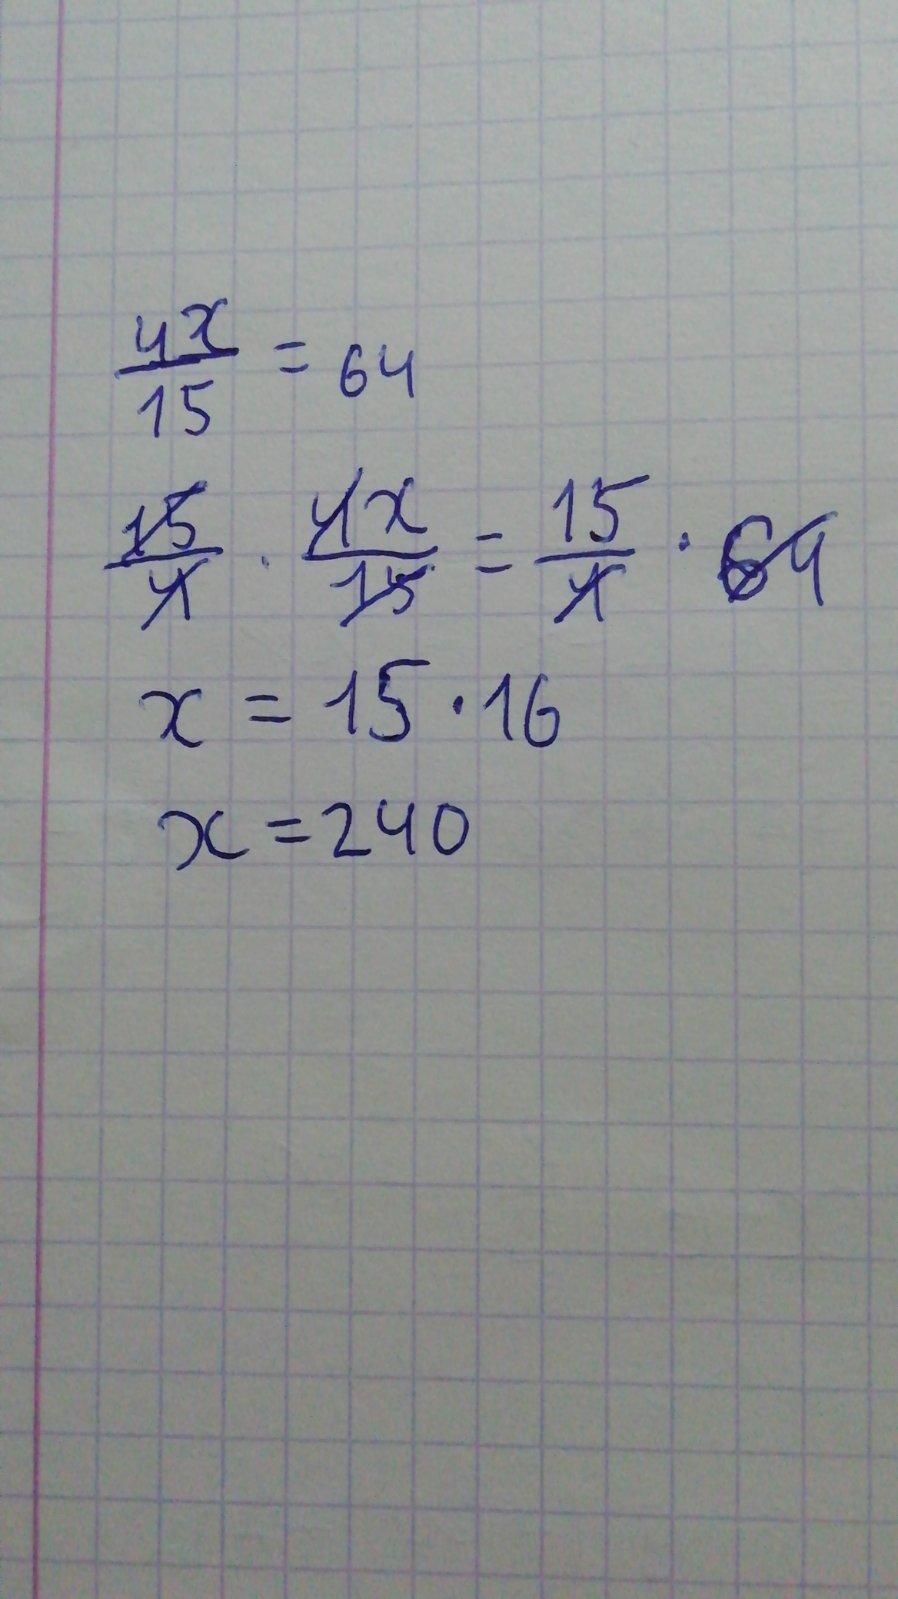 4x/15 = 64
15/4 · 4x/15 = 15/4 · 64
x = 15 · 16
x = 240